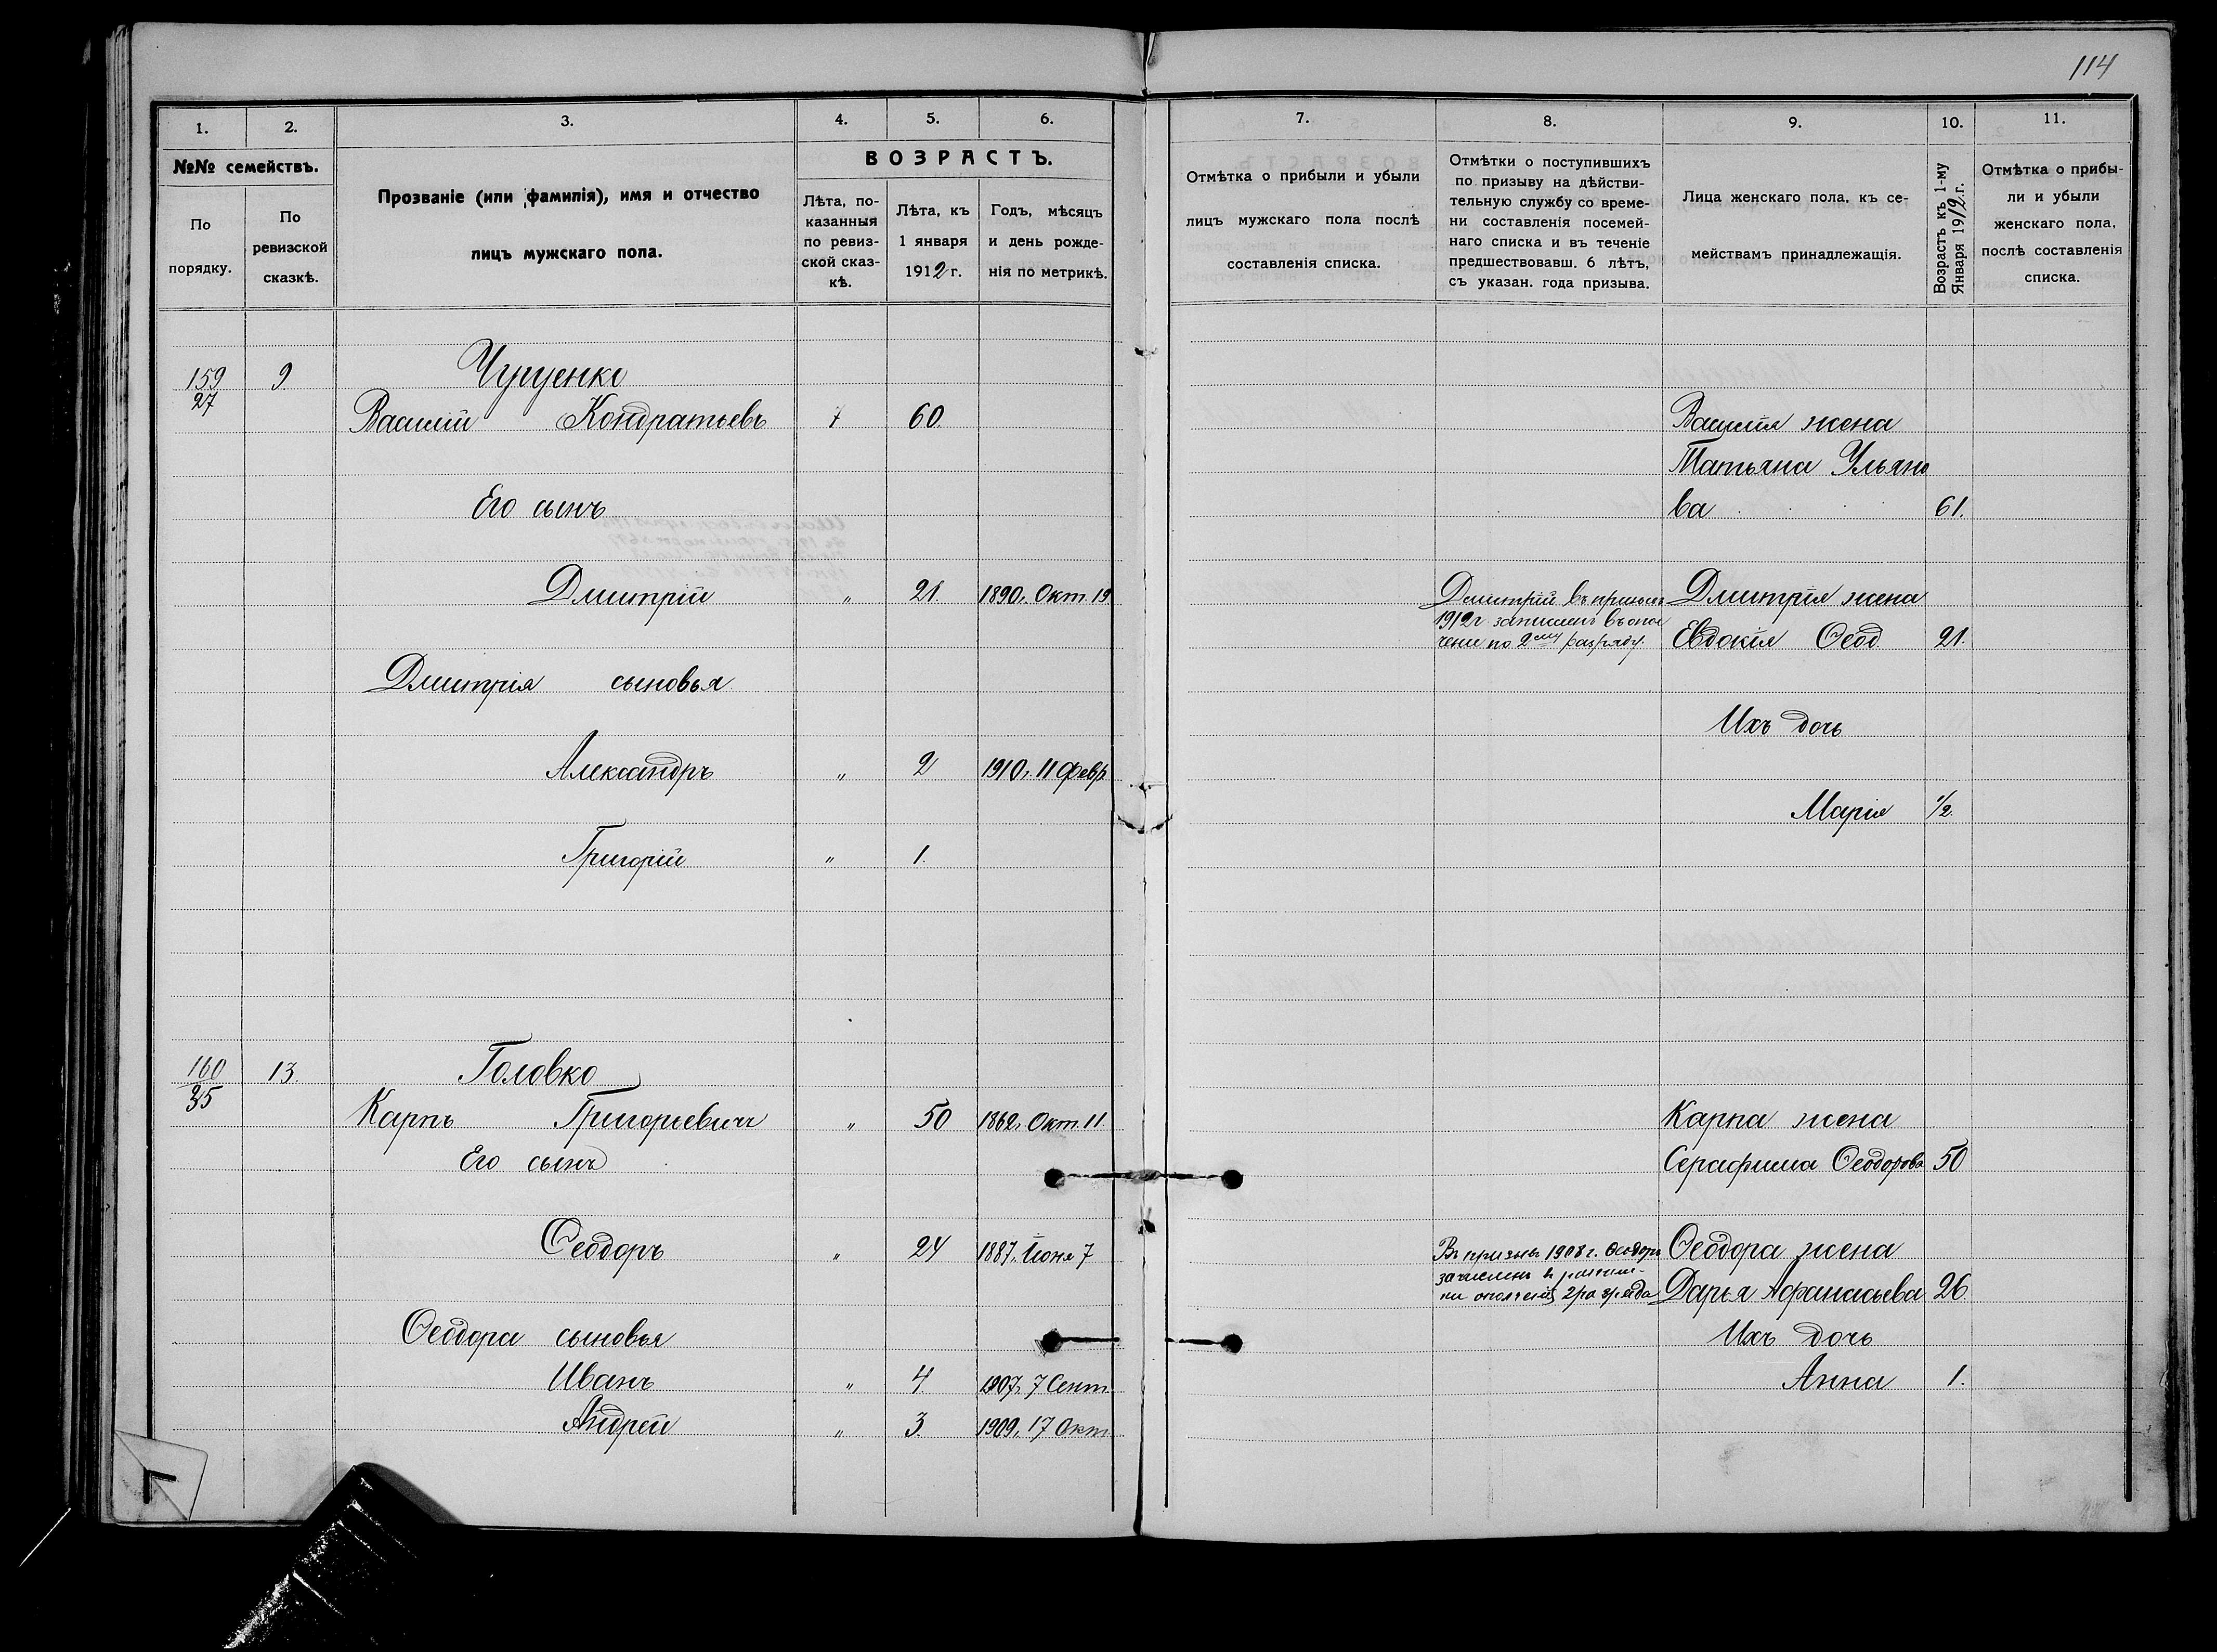 114
1. 2. 3. 4. 5. 6. 7. 8. 9. 10. 11.
№№ семействъ.
По порядку.
По ревизской сказкѣ.
Прозваніе (или фамилія), имя и отчество
лицъ мужскаго пола.
ВОЗРАСТЪ.
Лѣта, по-
казанныя
по ревиз-
ской сказ-
кѣ.
Лѣта, къ
1 января
1912 г.
Годъ, мѣсяцъ
и день рожде-
нія по метрикѣ.
Отмѣтка о прибыли и убыли
лицъ мужскаго пола послѣ
составленія списка.
Отмѣтки о поступившихъ
по призыву на дѣйстви-
тельную службу со време-
ни составленія посемей-
наго списка и въ теченіе
предшествовавш. 6 лѣтъ,
съ указан. года призыва.
Лица женскаго пола, къ се-
мействамъ принадлежащія.
Возрастъ къ 1-му
Января 1912 г.
Отмѣтка о прибы-
ли и убыли
женскаго пола,
послѣ составленія
списка.
159 9 Чугуенко
27
Василій Кондратьевъ 7 60. Василія жена
Татьяна Ульяно
Его сынъ ва 61.
Дмитрій " 21. 1890. Окт. 19 Дмитрій въ призывъ Дмитрія жена
1912 г. записанъ въ опол
чение по 2му разряду. Евдокія Ѳеод. 21.
Дмитрія сыновья
Ихъ дочь
Александръ " 2 1910. 11 Февр
Марія 1/2.
Григорій " 1.
160 13. Головко
35
Карпъ Григорьевичъ " 50 1862. Окт. 11. Карпа жена
Его сынъ Серафима Ѳеодорова 50
Ѳеодоръ " 24 1887. Іюня 7 Въ призывъ 1908 г. Ѳеодоръ Ѳеодора жена
зачисленъ в ратни-
ки ополченія 2 разряда Дарья Афанасьева 26.
Ѳеодора сыновья Ихъ дочь
Иванъ " 4. 1907. 7 Сент. Анна 1.
Андрей " 3. 1909. 17 Окт.